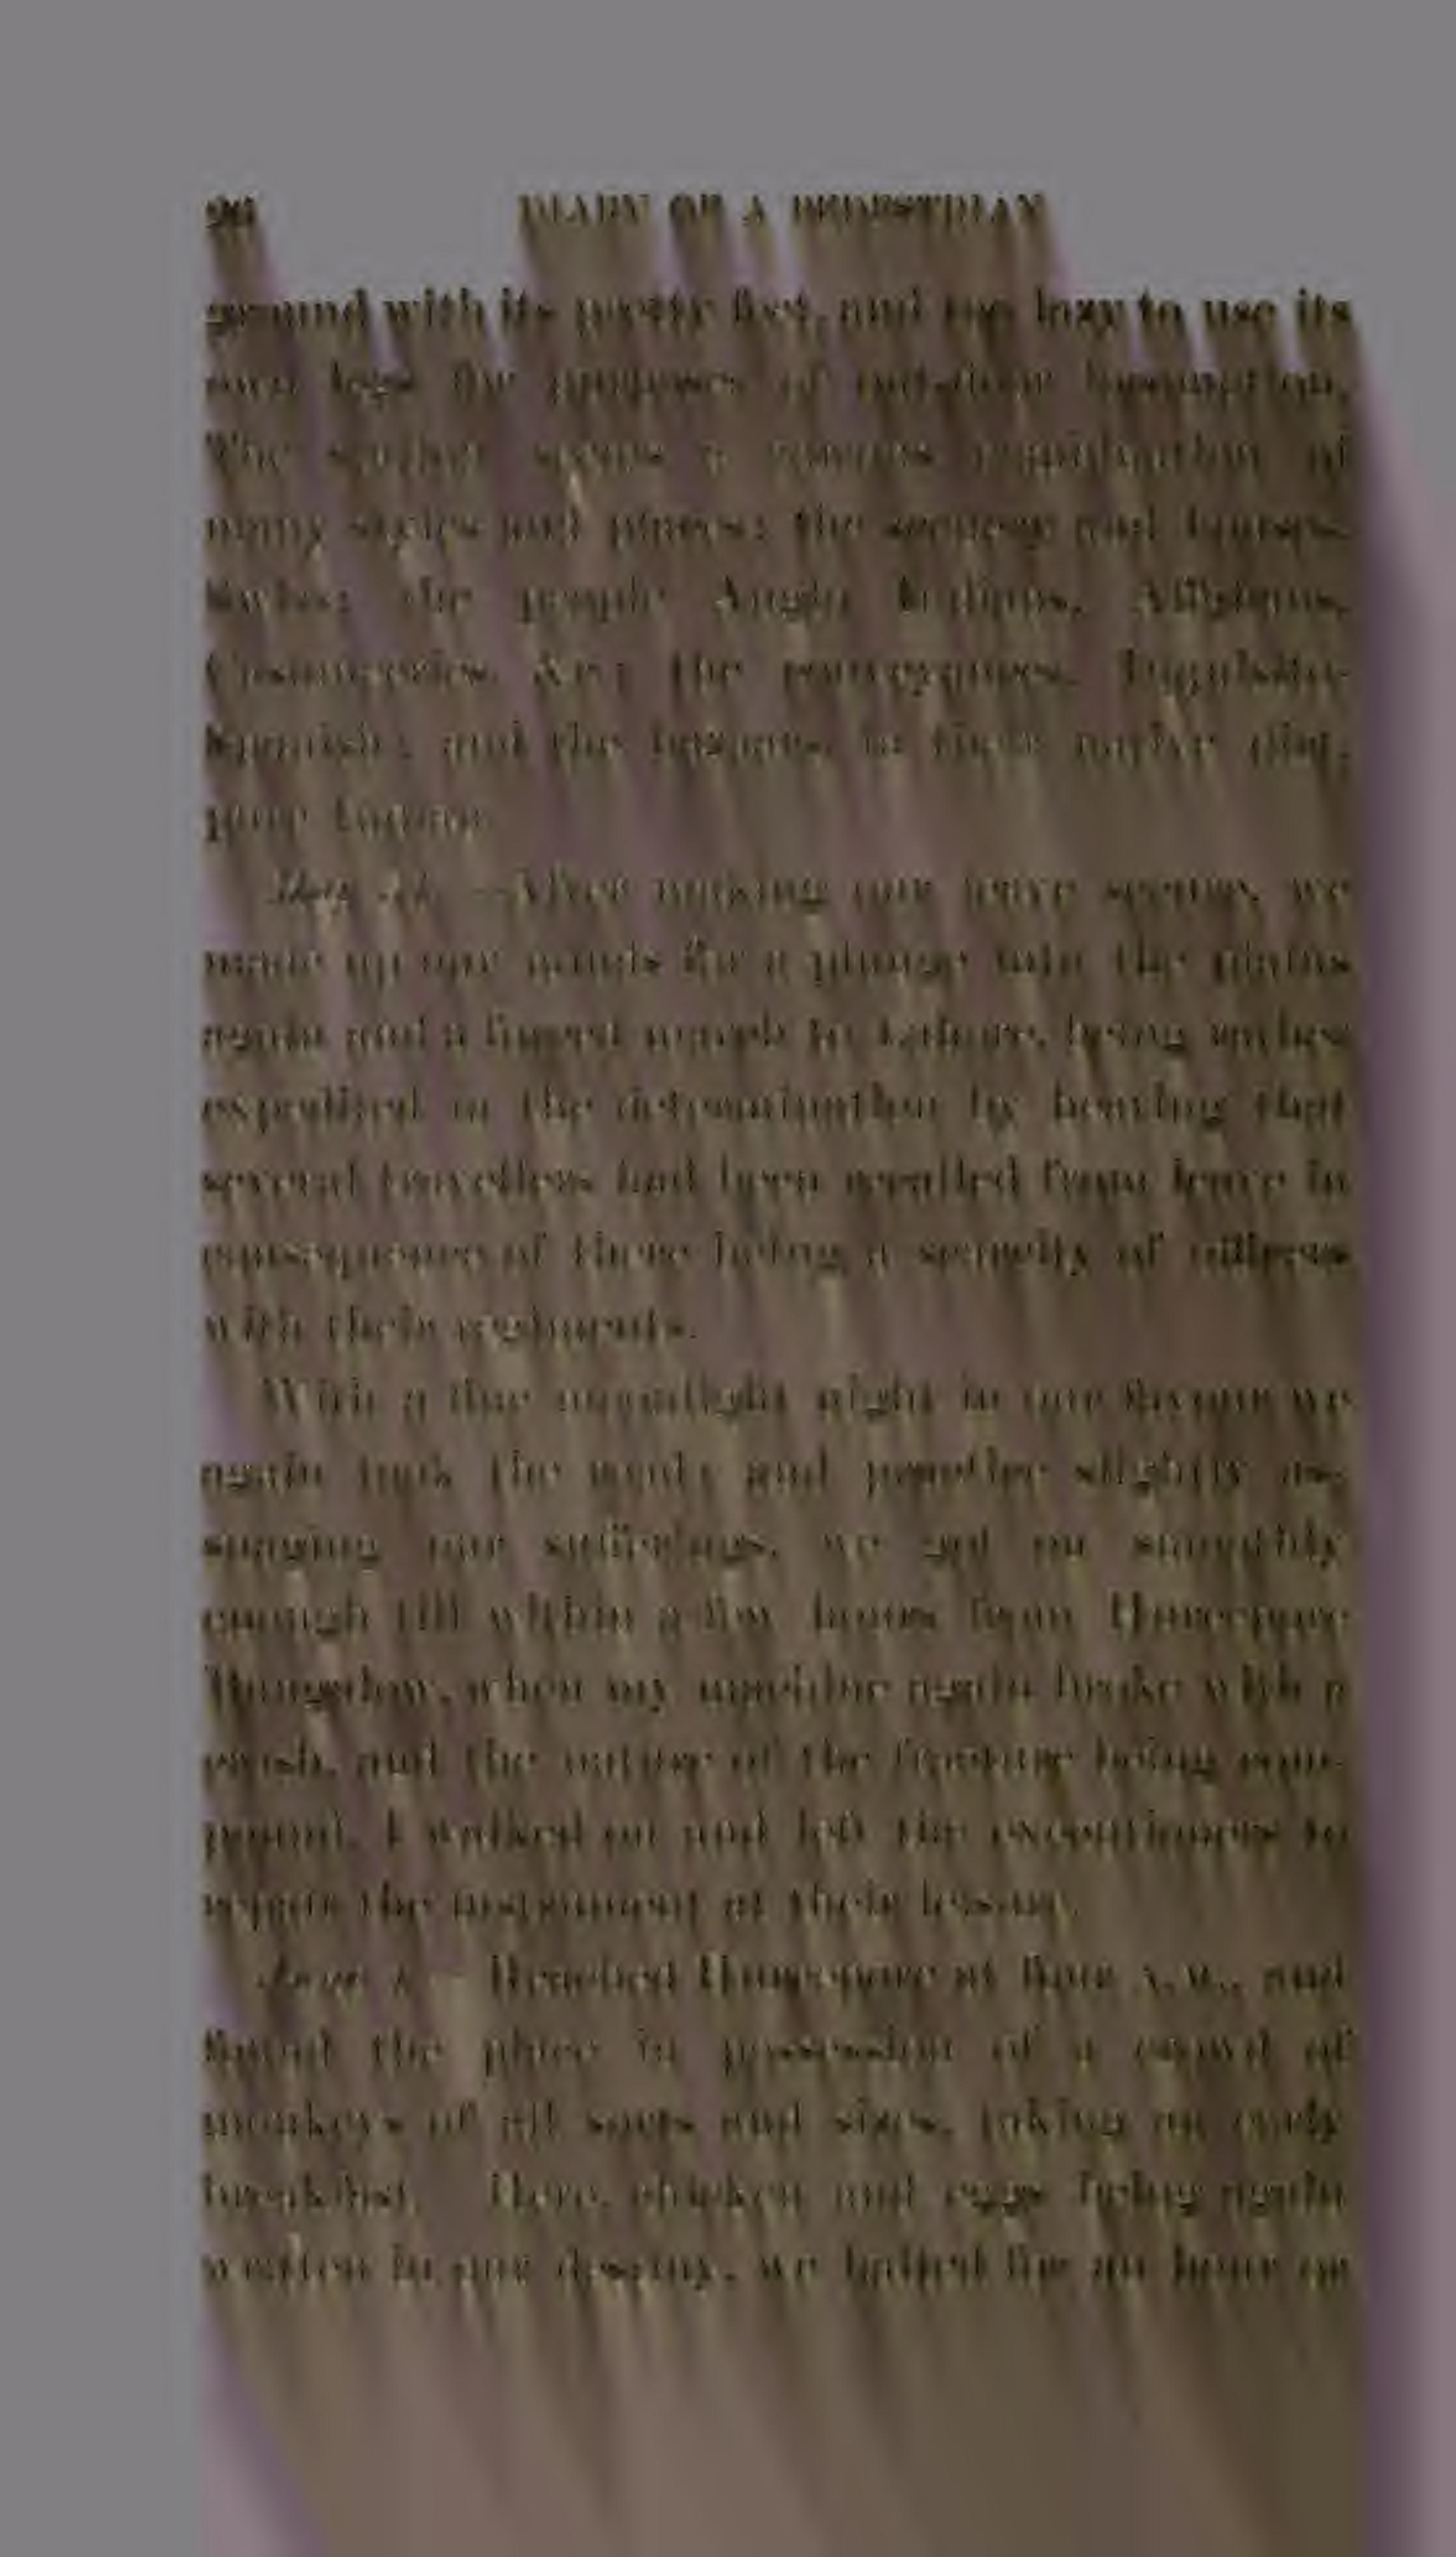 DIARY OF A PEDESTRIAN
ground with its pretty feet, and too lazy to use its
own legs for purposes of out-door locomotion.
The whole forms a curious combination of
many styles and places: the scenery and houses,
Swiss; the people Anglo Indians, Affghans,
Cashmeeries, &c.; the conveyances,
Spanish; and the in their native dirt,
pure Indian.
After our leave we
made up our minds for a plunge into the plains
again and a forced march to Lahore, being
expedited in the determination by hearing that
several travellers had been recalled from leave in
consequence of there being a scarcity of officers
with their regiments.
With a fine moonlight night in our favour we
again took the road; and practice slightly as-
suaging our sufferings, we got on smoothly
enough till within a few hours from
Bungalow, when my machine again broke with a
crash, and the nature of the fracture being com-
pound, I walked on and left the executioners to
repair the instrument at their leisure.
Reached at four A.M., and
found the place in possession of a crowd of
monkeys of all sorts and sizes, taking an early
breakfast. Here, chicken and eggs being again
written in our destiny, we halted for an hour or